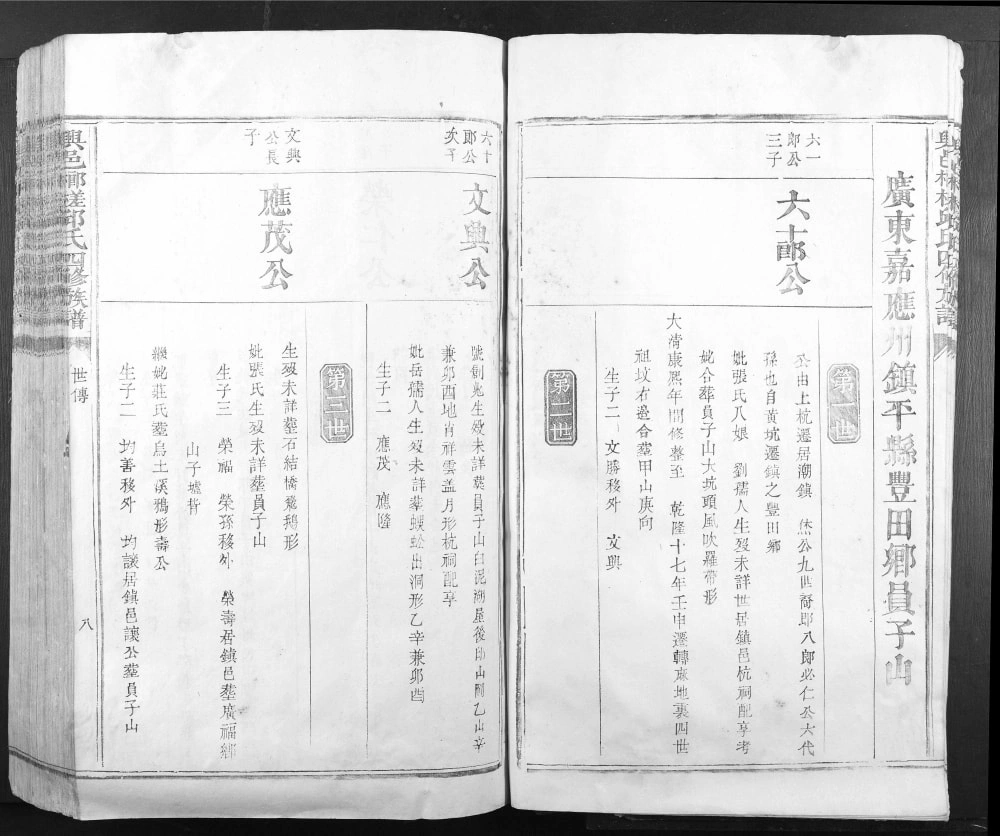 廣東嘉應州鎮平縣豐田鄉員子山
第一世
六一郎公三子
六十郎公
公由上杭遷居潮鎮 烋公九世裔郎八郎必仁公六代
孫也自黃坑遷鎮之豐田鄉
妣張氏八娘 劉孺人生歿未詳世居鎮邑杭祠配享考
妣合葬員子山大坑頭風吹羅帶形
大清康熙年間修整至 乾隆十七年壬申遷轉 地裏四世
祖坟右邉合葬甲山庚向
生子二 文勝移外 文興
第二世
六十郎公次子
文興公
號創 生歿未詳葬員子山白泥湖屋後 山 乙山辛
兼卯酉地肖祥雲盖月形杭祠配享
妣岳孺人生歿未詳葬螻蚣出洞形乙辛兼卯酉
生子二 應茂 應隆
第三世
文興公長子
應茂公
生歿未詳葬石結橋 鵝形
妣張氏生歿未詳葬員子山
生子三 榮福 榮孫移外 榮壽居鎮邑葬廣福鄉
山子墟背
繼妣莊氏葬烏土溪鴉形壽公
生子二 均善移外 均讓居鎮邑讓公葬員子山
興邑 邱氏四修族譜
世傳
八